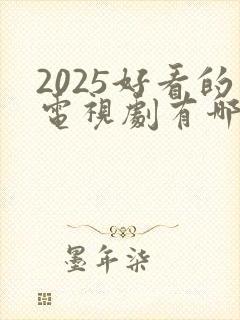 2025好看的
電視劇有哪
墨年柒